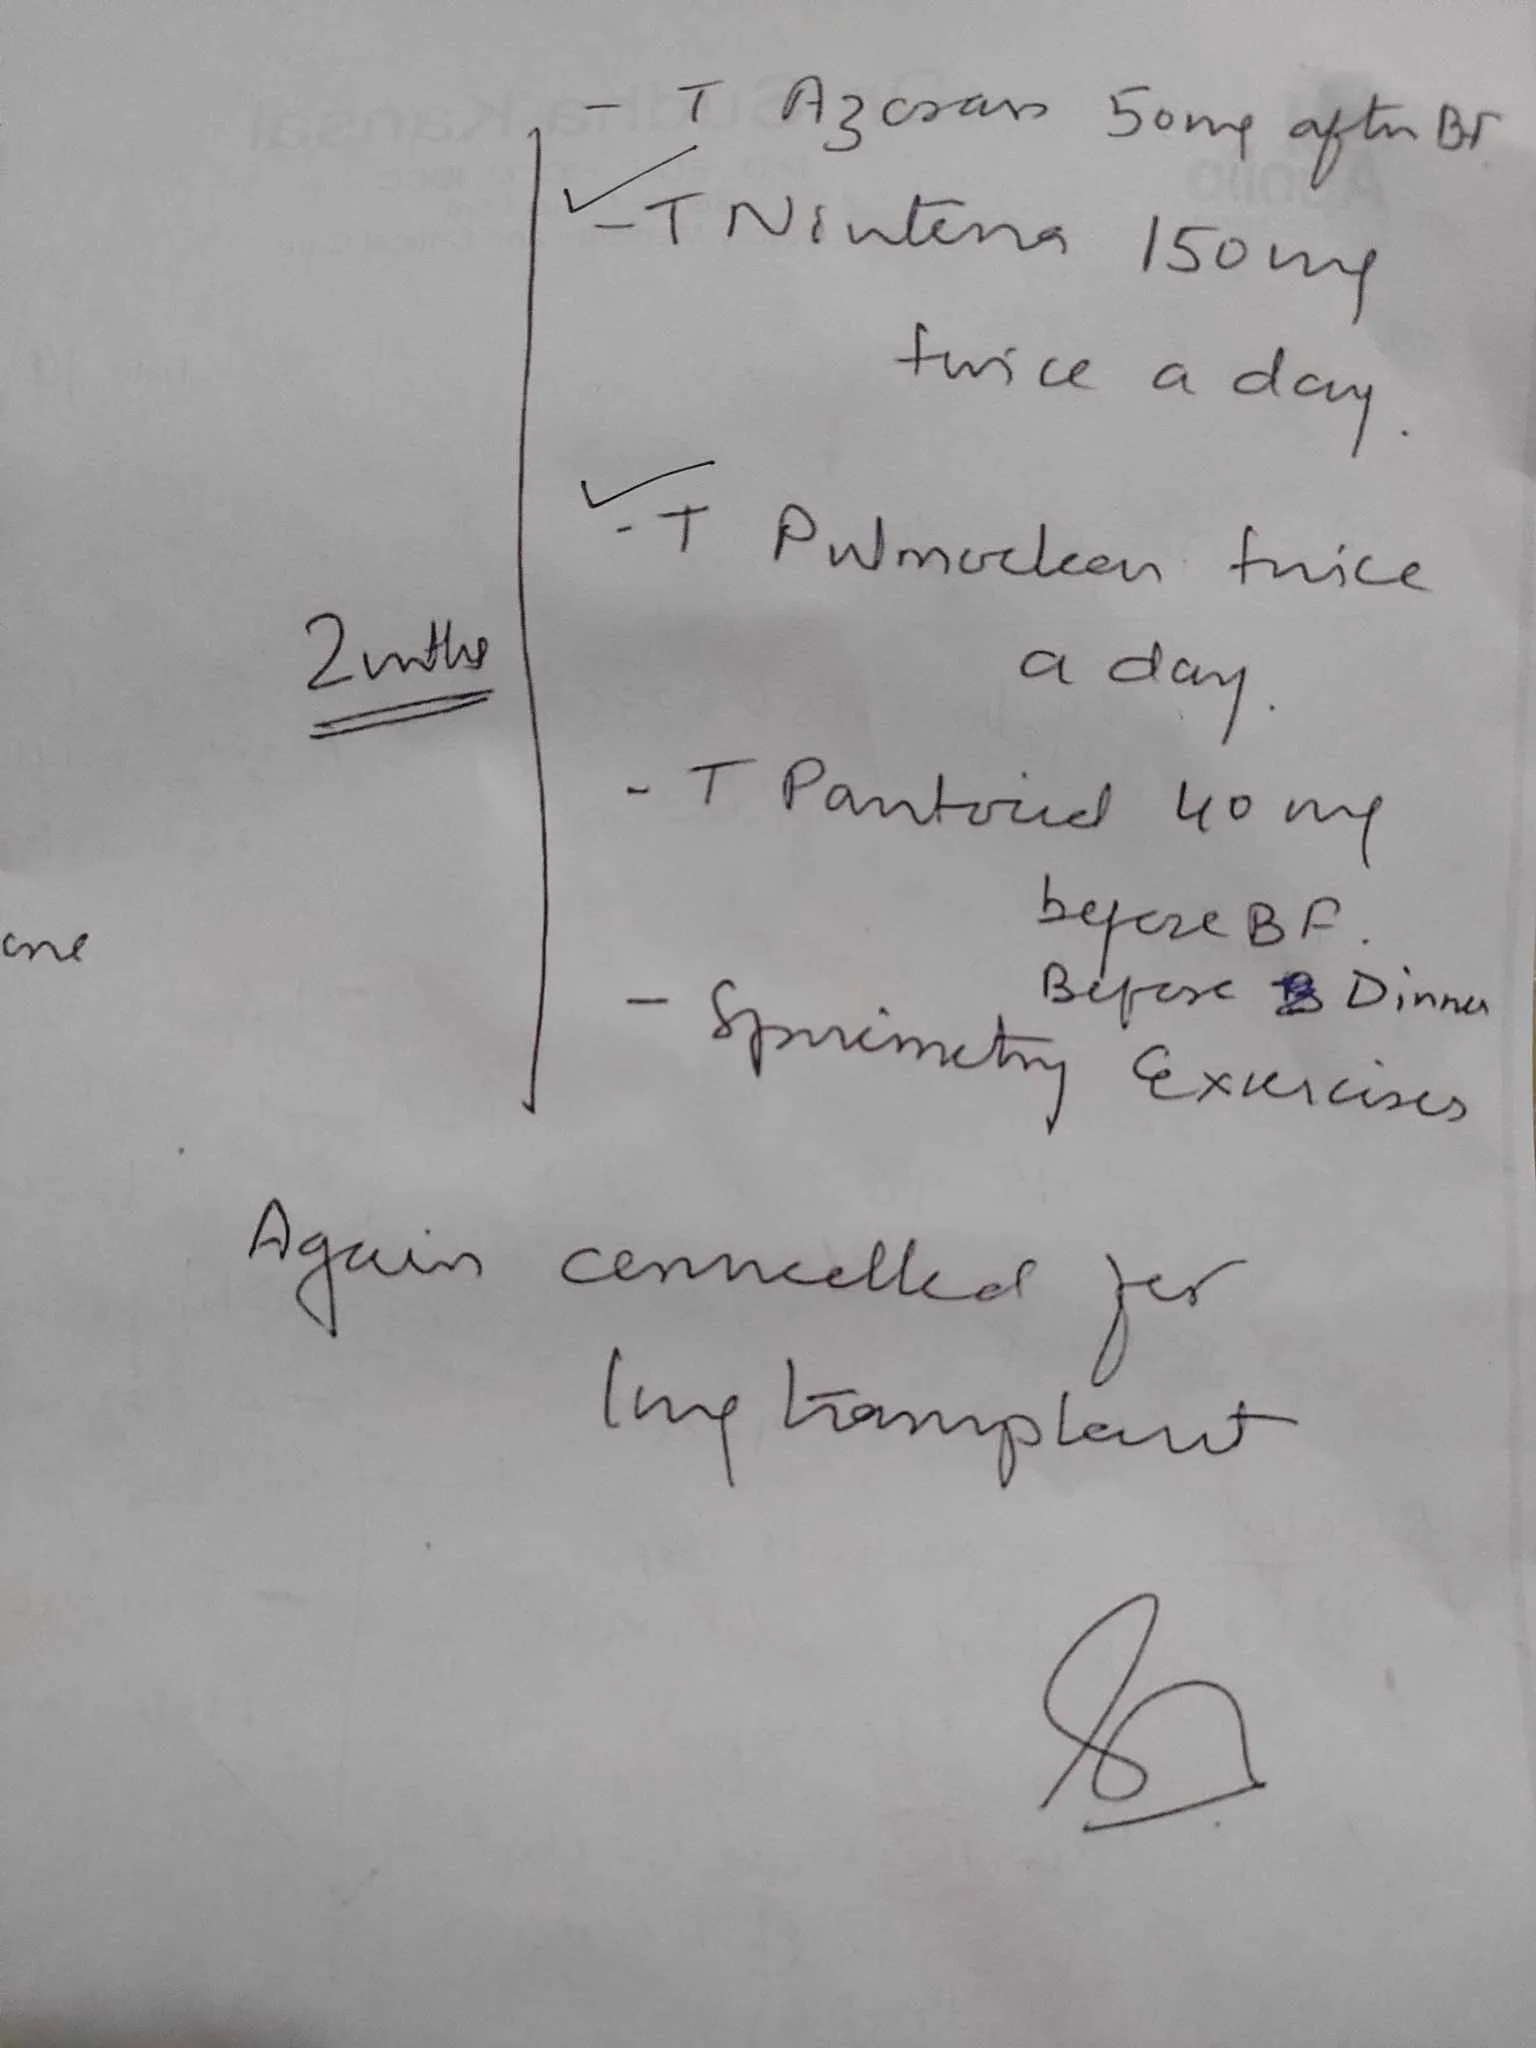 - T Azoran 50mg after BF
- T Nintena 150mg
twice a day.
- T Pulmoclear twice
a day.
2mths
- T Pantocid 40mg
before BF.
Before Dinner
- Spirimetry Exercises
one
Again councelled for
lung transplant